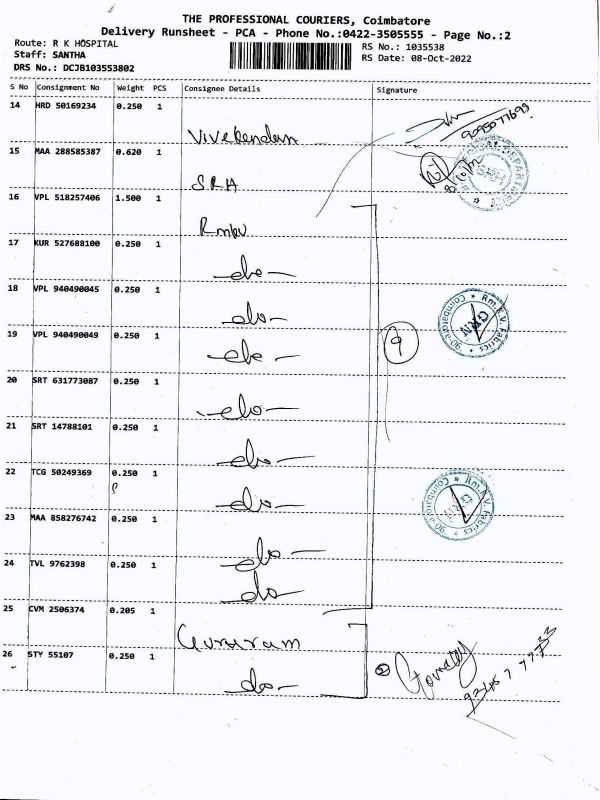 THE PROFESSIONAL COURIERS, Coimbatore
Delivery Runsheet - PCA - Phone No.:0422-3505555 - Page No.:2
Route: R K HOSPITAL
Staff: SANTHA
DRS No.: DCJB103553802
RS No.: 1035538
RS Date: 08-Oct-2022
S No Consignment No Weight PCS Consignee Details Signature
14 HRD 50169234 0.250 1
Vivekendan
9095077693
15 MAA 288585387 0.620 1
SRH
8/10/22
16 VPL 518257406 1.500 1
Rmkv
17 KUR 527688100 0.250 1
-do-
18 VPL 940490045 0.250 1
-do-
Rm.K.V. Fabrics
GRN
Coimbatore-90
19 VPL 940490049 0.250 1
-do-
9
20 SRT 631773087 0.250 1
-do-
21 SRT 14788101 0.250 1
-do-
22 TCG 50249369 0.250 1
-do-
Rm.K.V. Fabrics
Coimbatore-90
23 MAA 858276742 0.250 1
-do-
24 TVL 9762398 0.250 1
do
25 CVM 2506374 0.205 1
Gururam
26 STY 55107 0.250 1
-do-
2